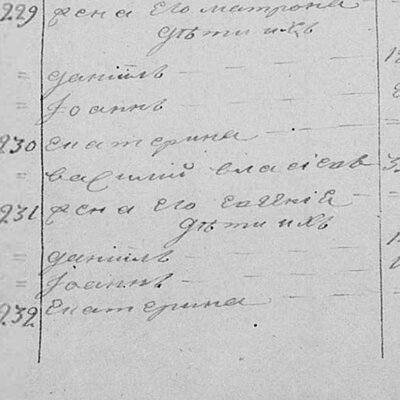 229 жена Его матрона
дѣти ихъ
= даніилъ
= Іоаннъ
230 екатерина
= василий власіевъ
231 жена Его евгеніе
дѣти ихъ
= даніилъ
= Іоаннъ
232 Екатерина